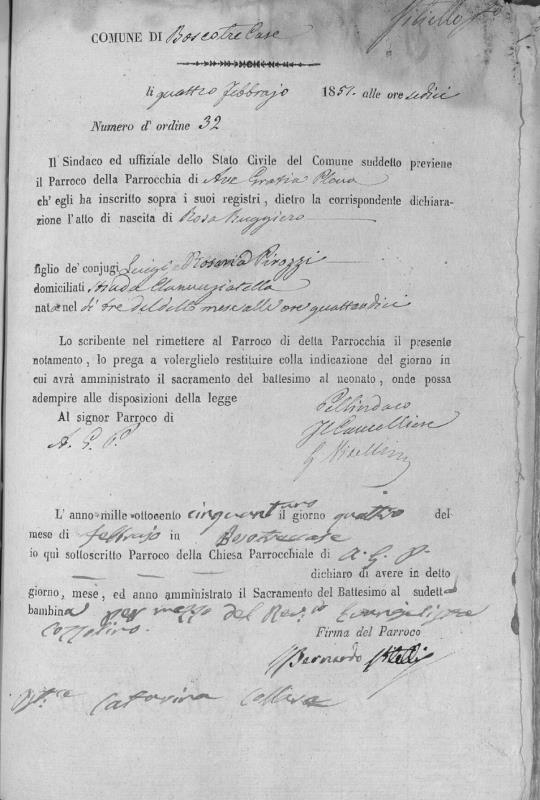 COMUNE DI Boscotrecase
li quattro Febbrajo 1851. alle ore sedici
Numero d' ordine 32
Il Sindaco ed uffiziale dello Stato Civile del Comune suddetto previene
il Parroco della Parrocchia di Ave Gratia Plena
ch' egli ha inscritto sopra i suoi registri, dietro la corrispondente dichiara-
zione l'atto di nascita di Rosa Ruggiero
figlio de' conjugi Luigi e Rosaria Pirozzi
domiciliati strada Annunziatella
nata nel dì tre del detto mese alle ore quattordici
Lo scribente nel rimettere al Parroco di detta Parrocchia il presente
notamento, lo prega a volerglielo restituire colla indicazione del giorno in
cui avrà amministrato il sacramento del battesimo al neonato, onde possa
adempire alle disposizioni della legge
Al signor Parroco di
A. G. P.
Pel Sindaco
Il Cancelliere
L' anno mille ottocento cinquantuno il giorno quattro del
mese di febbrajo in Boscotrecase
io qui sottoscritto Parroco della Chiesa Parrocchiale di A. G. P.
dichiaro di avere in detto
giorno, mese, ed anno amministrato il Sacramento del Battesimo al sudetta
bambina per mezzo del Evangelista
Cozzolino.
Firma del Parroco
Bernardo Vitelli
Catarina